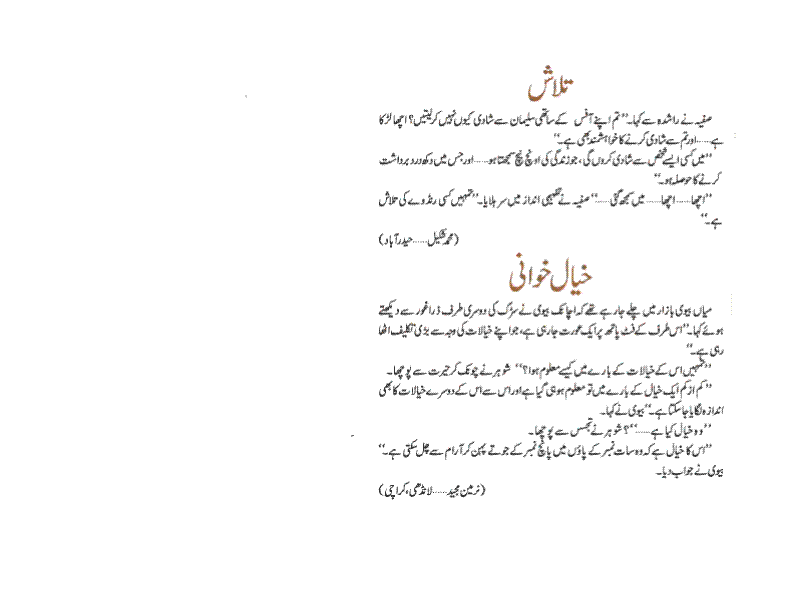 تلاش
صفیہ نے راشدہ سے کہا۔ ’’تم اپنے آفس کے ساتھی سلیمان سے شادی کیوں نہیں کرلیتیں؟ اچھا لڑکا
ہے……اور تم سے شادی کرنے کا خواہشمند بھی ہے۔‘‘
’’میں کسی ایسے شخص سے شادی کروں گی، جو زندگی کی اونچ نیچ سمجھتا ہو……اور جس میں دکھ درد برداشت
کرنے کا حوصلہ ہو۔‘‘
’’اچھا……اچھا……میں سمجھ گئی……‘‘ صفیہ نے تفہیمی انداز میں سر ہلایا۔ ’’تمہیں کسی رنڈوے کی تلاش
ہے۔‘‘
(محمد شکیل……حیدرآباد)
خیال خوانی
میاں بیوی بازار میں چلے جارہے تھے کہ اچانک بیوی نے سڑک کی دوسری طرف ذرا غور سے دیکھتے
ہوئے کہا۔ ’’اس طرف کے فٹ پاتھ پر ایک عورت جارہی ہے، جو اپنے خیالات کی وجہ سے بڑی تکلیف اٹھا
رہی ہے۔‘‘
’’تمہیں اس کے خیالات کے بارے میں کیسے معلوم ہوا؟‘‘ شوہر نے چونک کر حیرت سے پوچھا۔
’’کم از کم ایک خیال کے بارے میں تو معلوم ہو ہی گیا ہے اور اس سے اس کے دوسرے خیالات کا بھی
اندازہ لگایا جاسکتا ہے۔‘‘ بیوی نے کہا۔
’’وہ خیال کیا ہے……‘‘؟ شوہر نے تجسس سے پوچھا۔
’’اس کا خیال ہے کہ وہ سات نمبر کے پاؤں میں پانچ نمبر کے جوتے پہن کر آرام سے چل سکتی ہے۔‘‘
بیوی نے جواب دیا۔
(نرمین مجید……لانڈھی، کراچی)